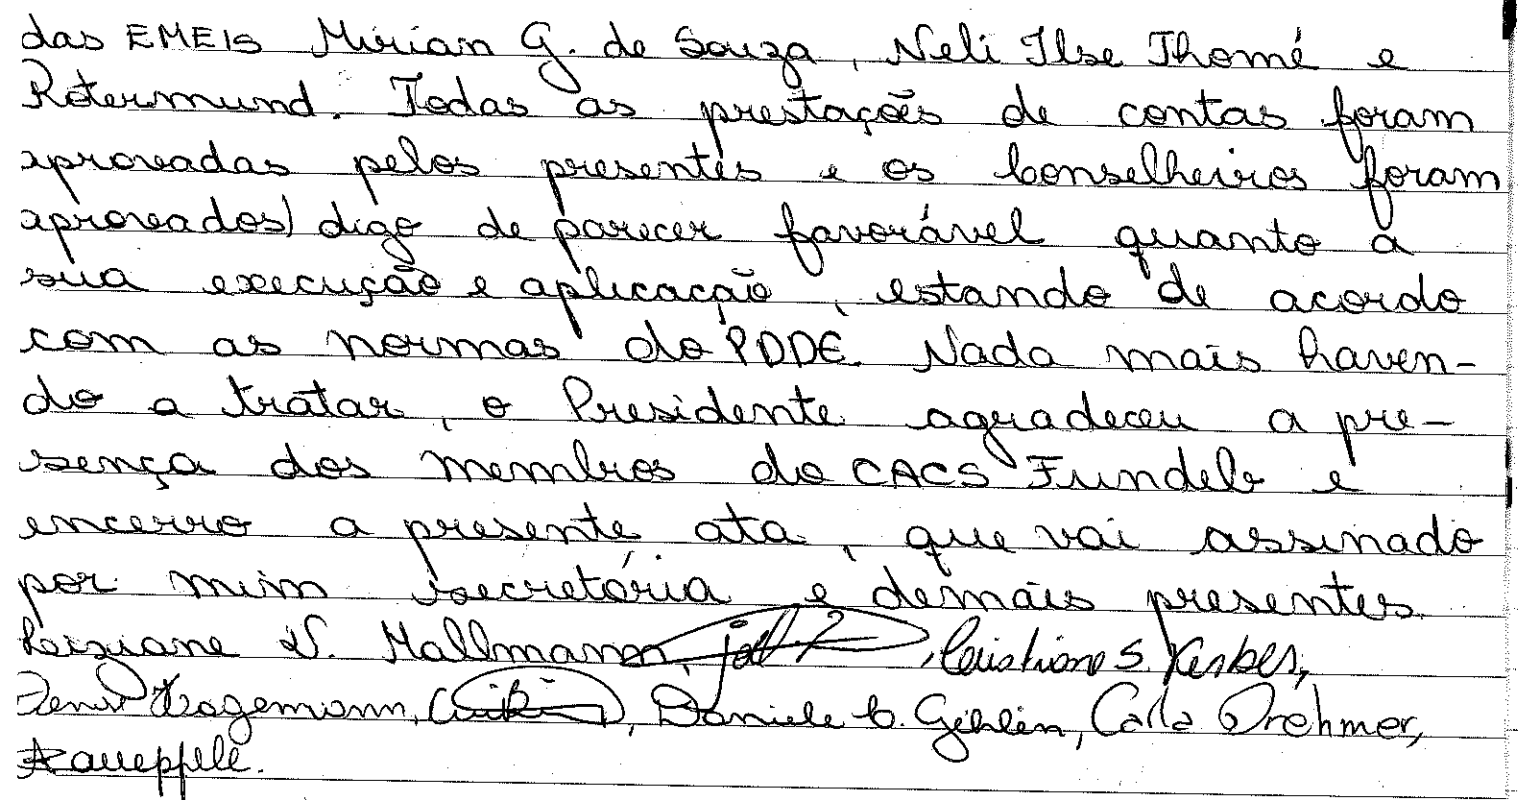 das EMEIs Mirian G. de Souza, Neli Ilse Thomé e
Rotermund. Todas as prestações de contas foram
aprovadas pelos presentes e os Conselheiros foram
aprovados) digo de parecer favorável quanto a
sua execução e aplicação, estando de acordo
com as normas do PDDE. Nada mais haven-
do a tratar, o Presidente agradeceu a pre-
sença dos membros do CACS Fundeb e
encerro a presente ata, que vai assinado
por mim secretária e demais presentes.
Loiziane V. Mallmann, Cristiane S. Kerber,
Hagemann, Daniele C. Gehlen, Carla Drehmer,